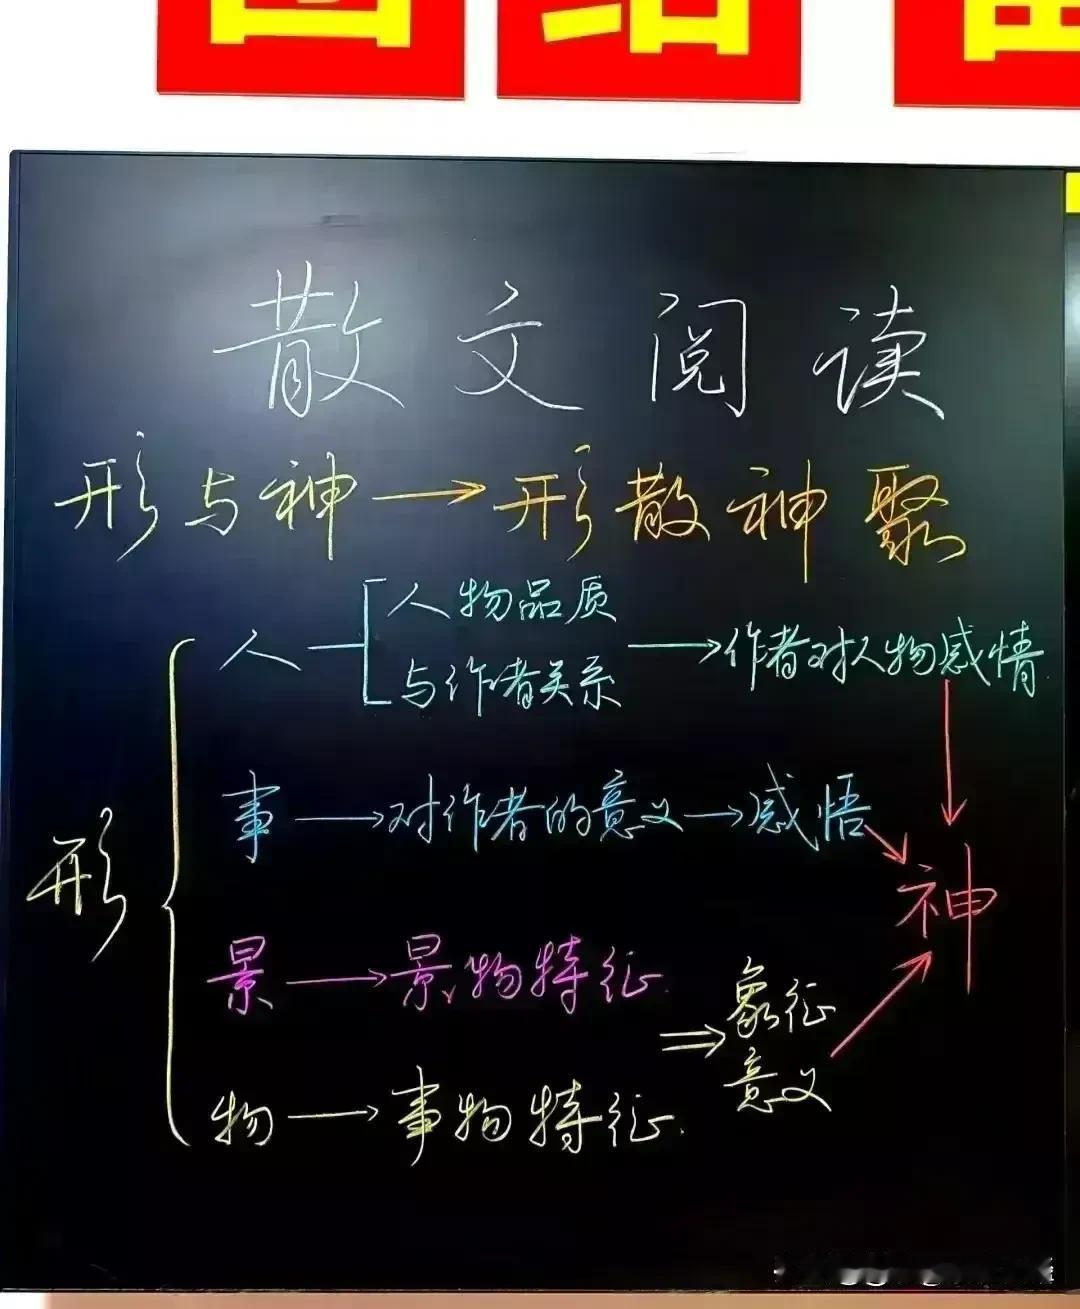 团结奋
散文阅读
形与神→形散神聚
人 人物品质 → 作者对人物感情
与作者关系
事→对作者的意义→感悟
神
形
景→景物特征
⇒象征
意义
物→事物特征.